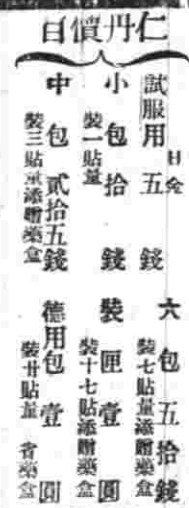 仁丹價目
日金
試服用 五 錢
小包拾錢
裝一貼量
中包貳拾五錢
裝三貼量添贈藥盒
六包五拾錢
裝七貼量添贈藥盒
裝匣壹圓
裝十七貼添贈藥盒
德用包壹圓
裝廿貼量 省藥盒